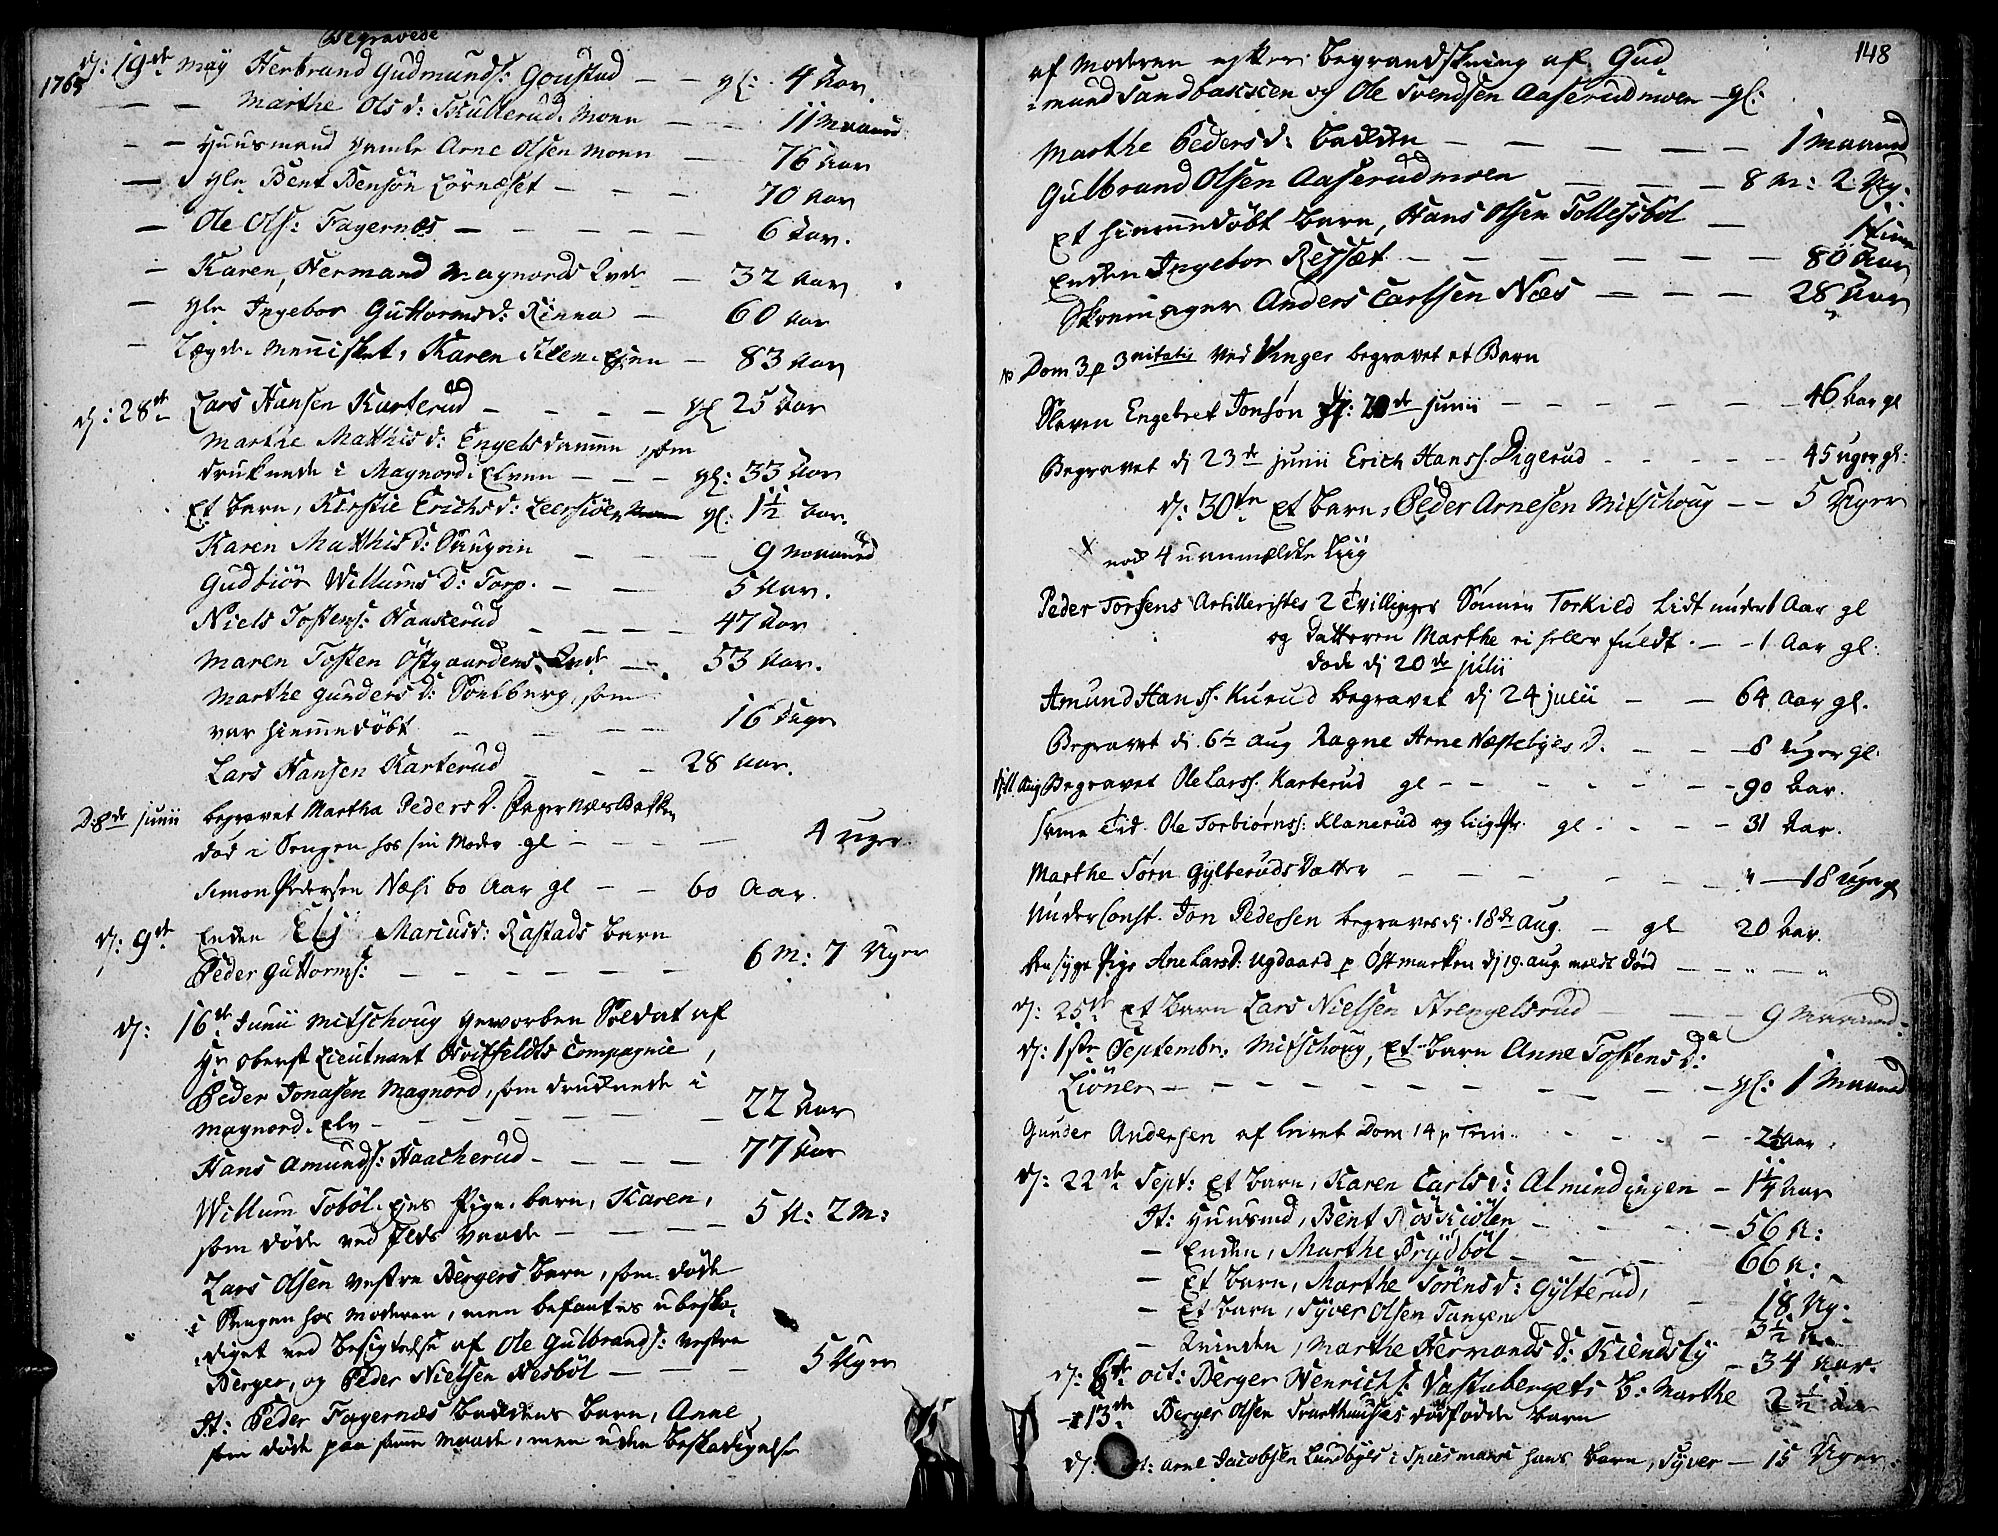 Begravede
1765
d: 19de May Herbrand Gudmunds: Goustad — — gl: 4 Aar.
— — Marthe Ols d: Skullerud. Moen — — 11 Maaned
— — Huusmand gamle Arne Olsen Moen — 76 Aar
— gle Bent Bensön — — 70 Aar
— Ole Ols: Fagernæs — — — — — 6 Aar.
— Karen, Hermand Magnords Qvde — 32 Aar
— gle Ingebor Guttormsd: Rinna — 60 Aar
— Lægde. Mennisket, Karen — 83 Aar
d: 28de Lars Hansen Karterud — — — — gl 25 Aar
Marthe Matthisd: Engelsdammen, som
druknede i Magnord. Elven — — — gl: 33 Aar
Et Barn, Kirstie Erichsd: gl: 1½ Aar.
Karen Matthisd: — — — 9 Maaned
Gudbiör Willumsd: Torp. — — — 5 Aar.
Niels Tostens: Haacherud — — — — 47 Aar
Maren Tosten Östgaardens Qvde — 53 Aar.
Marthe Gundersd: som
var hiemmedöbt — — — — 16 Dage
Lars Hansen Karterud — — — 28 Aar.
D: 8de Junii begravet Martha Peders D. Fagernæs Bakke,
död i Sengen hos sin Moder gl — — — — 4 uger
Simon Pedersen Næs: 60 Aar gl — — 60 Aar.
d: 9de Enken Marius d: Rastads Barn
Peder Guttorms: — — — — — — — 6 M: 7 Uger
d: 16de Junii Mitschoug geworben Soldat af
Hr Oberst Lieutnant Hvitfeldts Compagnie,
Peder Jonasen Magnord, som druknede i
Magnord. Elv — — — — — — — 22 Aar
Hans Amunds: Haacherud — — — — 77 Aar
Willum Toböl. ejes Pige. barn, Karen,
som döde ved Ilds vaade — — — — 5 A: 2 M:
Lars Olsen vestre Bergers Barn, som döde
i Sengen hos Moderen, men befantes ubeska-
diget ved Besigtelse af Ole Gulbrands: vestre
Berger, og Peder Nielsen Nesböl — — — 5 Uger
It: Peder Fagernæs Bakkens Barn, Anne,
som döde paa samme maade, men uden beskadigelse
148
af Moderen efter Begrandskning af Gud-
mund Sandbakken og Ole Svendsen Aaserudmoen gl:
Marthe Pedersd: Bakken — — — — — 1 Maaned
Gulbrand Olsen Aaserudmoen — — — 8 M: 2 Ug:
Et hiemmedöbt Barn, Hans Olsen Tollefsböl — 1 time
Enken Ingebor — — — — — — 80 Aar
Skomager Anders Carlsen Næs — — — 28 Aar
Dom 3 p 3nitatis ved Vinger begravet et Barn
Engebret Jonsøn d: 20de Junii — — — — — 46 Aar gl
Begravet dj 23de Junii Erich Hanss. Digerud — — — — 45 uger gl:
d: 30te Et Barn, Peder Arnesen Mitschoug — — 5 Uger
x nok 4 uanmeldte Liig
Peder Torsens Artilleristes 2 Tvillinger Sönnen Torkild Lidt under 1 Aar gl
og Datteren Marthe ei heller fuldt — — 1 Aar gl.
döde dj 20de Julii
Amund Hanss. Kurud begravet dj 24 Julii — — 64 Aar gl.
Begravet dj. 6te Aug Ragne Arne Næstebyes D. — — — 8 uger gl.
dj 11 Aug Begravet Ole Larss. Karterud gl — — — — — 90 Aar.
Samme Tid. Ole Torbiørnss: Klanerud gl — — — 31 Aar.
Marthe Sørn Gylteruds Datter — — — — — — " — 18 uger gl
Under Const. Jon Pedersen begraves dj. 18de Aug. — gl 20 Aar.
Den syge Pige Ane Larsd: Ugdaard p Østmarken dj 19. Aug. meldt død — — " — "
d: 25de Et Barn Lars Nielsen Strengelsrud — — — 9 Maaned
d: 1ste Septembr: Mitschoug, Et Barn Anne Tostensd:
Liöner — — — — — — — — — gl: 1 Maaned
Gunder Andersen af Leiret Dom 14 p Trin. — — — — — 2½ Aar.
d: 22de Sept: Et Barn, Karen Carlsd: Almindingen — 1¼ Aar
It: Huusmd, Bent Röskiölen — — — — 56 A:
— Enken, Marthe Prydböl — — — 66 A:
— Et Barn, Marthe Sörensd: Gylterud, — 18 Ug:
— Et Barn, Syver Olsen Tangen — 3½ A.
— Kvinden, Marthe Hermandsd: Kiendsly — 34 Aar.
d: 6te Oct: Berger Henrichs: Vastabergets B: Marthe 2½ Aar
— 13de Berger Olsen dödfödde Barn
d: Oct: Arne Jacobsen Lundbyes i hans Barn, Syver — 15 Uger